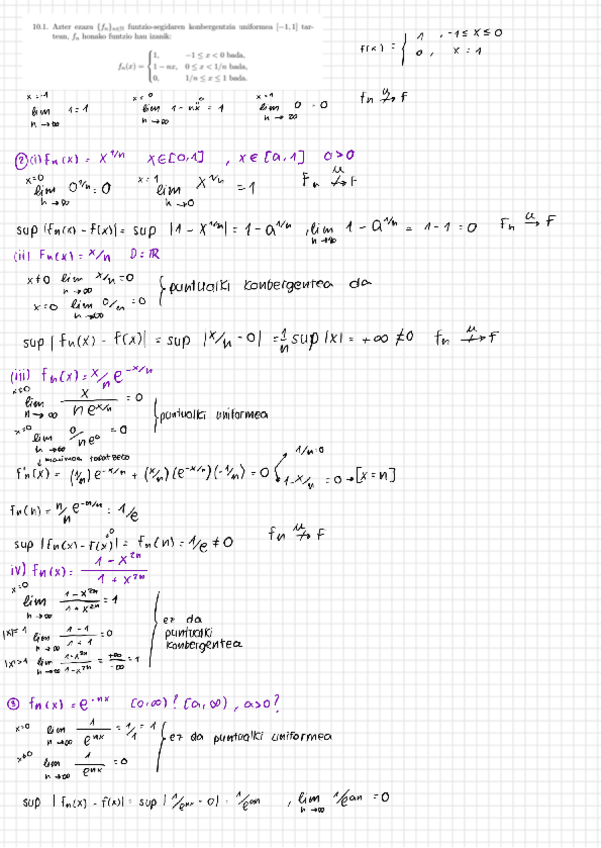 10.1. Azter ezazu {fₙ}ₙ∈ℕ funtzio-segidaren konbergentzia uniformea [−1, 1] tar-
tean, fₙ honako funtzio han izanik:
fₙ(x) = { 1, −1 ≤ x < 0 bada,
1 − nx, 0 ≤ x < 1/n bada,
0, 1/n ≤ x ≤ 1 bada.
f(x) = { 1, -1 ≤ x ≤ 0
0, x = 1
x=-1 lim n→∞ 1 = 1 x=0 lim n→∞ 1 - nx = 1 x=1 lim n→∞ 0 = 0 fn u↛ f
② (i) fn(x) = x^1/n x∈[0,1] , x∈[a,1] a>0
x=0 lim n→∞ 0^1/n = 0 x=1 lim n→0 x^1/n = 1 Fn u↛ F
sup |fn(x) - f(x)| = sup |1 - x^1/n| = 1 - a^1/n , lim n→∞ 1 - a^1/n = 1 - 1 = 0 Fn u→ F
(ii) Fn(x) = x/n D = ℝ
x≠0 lim n→∞ x/n = 0
x=0 lim n→∞ 0/n = 0 } puntualki konbergentea da
sup | fn(x) - f(x) | = sup |x/n - 0| = 1/n sup |x| = +∞ ≠ 0 fn u↛ F
(iii) fn(x) = x/n e^-x/n
x≠0 lim n→∞ x / n e^x/n = 0
x=0 lim n→∞ 0/ne⁰ = 0 } puntualki uniformea
↓ maximoa topatzeko
f'n(x) = (1/n) e^-x/n + (x/n)(e^-x/n)(-1/n) = 0 1/n = 0
1 - x/n = 0 → [x = n]
fn(n) = n/n e^-n/n = 1/e
sup |fn(x) - f(x)| = fn(n) = 1/e ≠ 0 fn u↛ F
iv) fn(x) = 1 - x^2n / 1 + x^2n
x=0 lim n→∞ 1 - x^2n / 1 + x^2n = 1
|x|=1 lim n→∞ 1 - 1 / 1 + 1 = 0
|x|>1 lim n→∞ 1 - x^2n / 1 - x^2n = +∞ / -∞ = 1
} ez da
puntualki
konbergentea
③ fn(x) = e^-nx [0,∞)? [a,∞) , a>0?
x=0 lim n→∞ 1 / e^nx = 1/1 = 1
x≠0 lim n→∞ 1 / e^nx = 0 } ez da puntualki uniformea
sup | fn(x) - f(x)| = sup | 1/e^nx - 0| = 1/e^an , lim n→∞ 1/e^an = 0